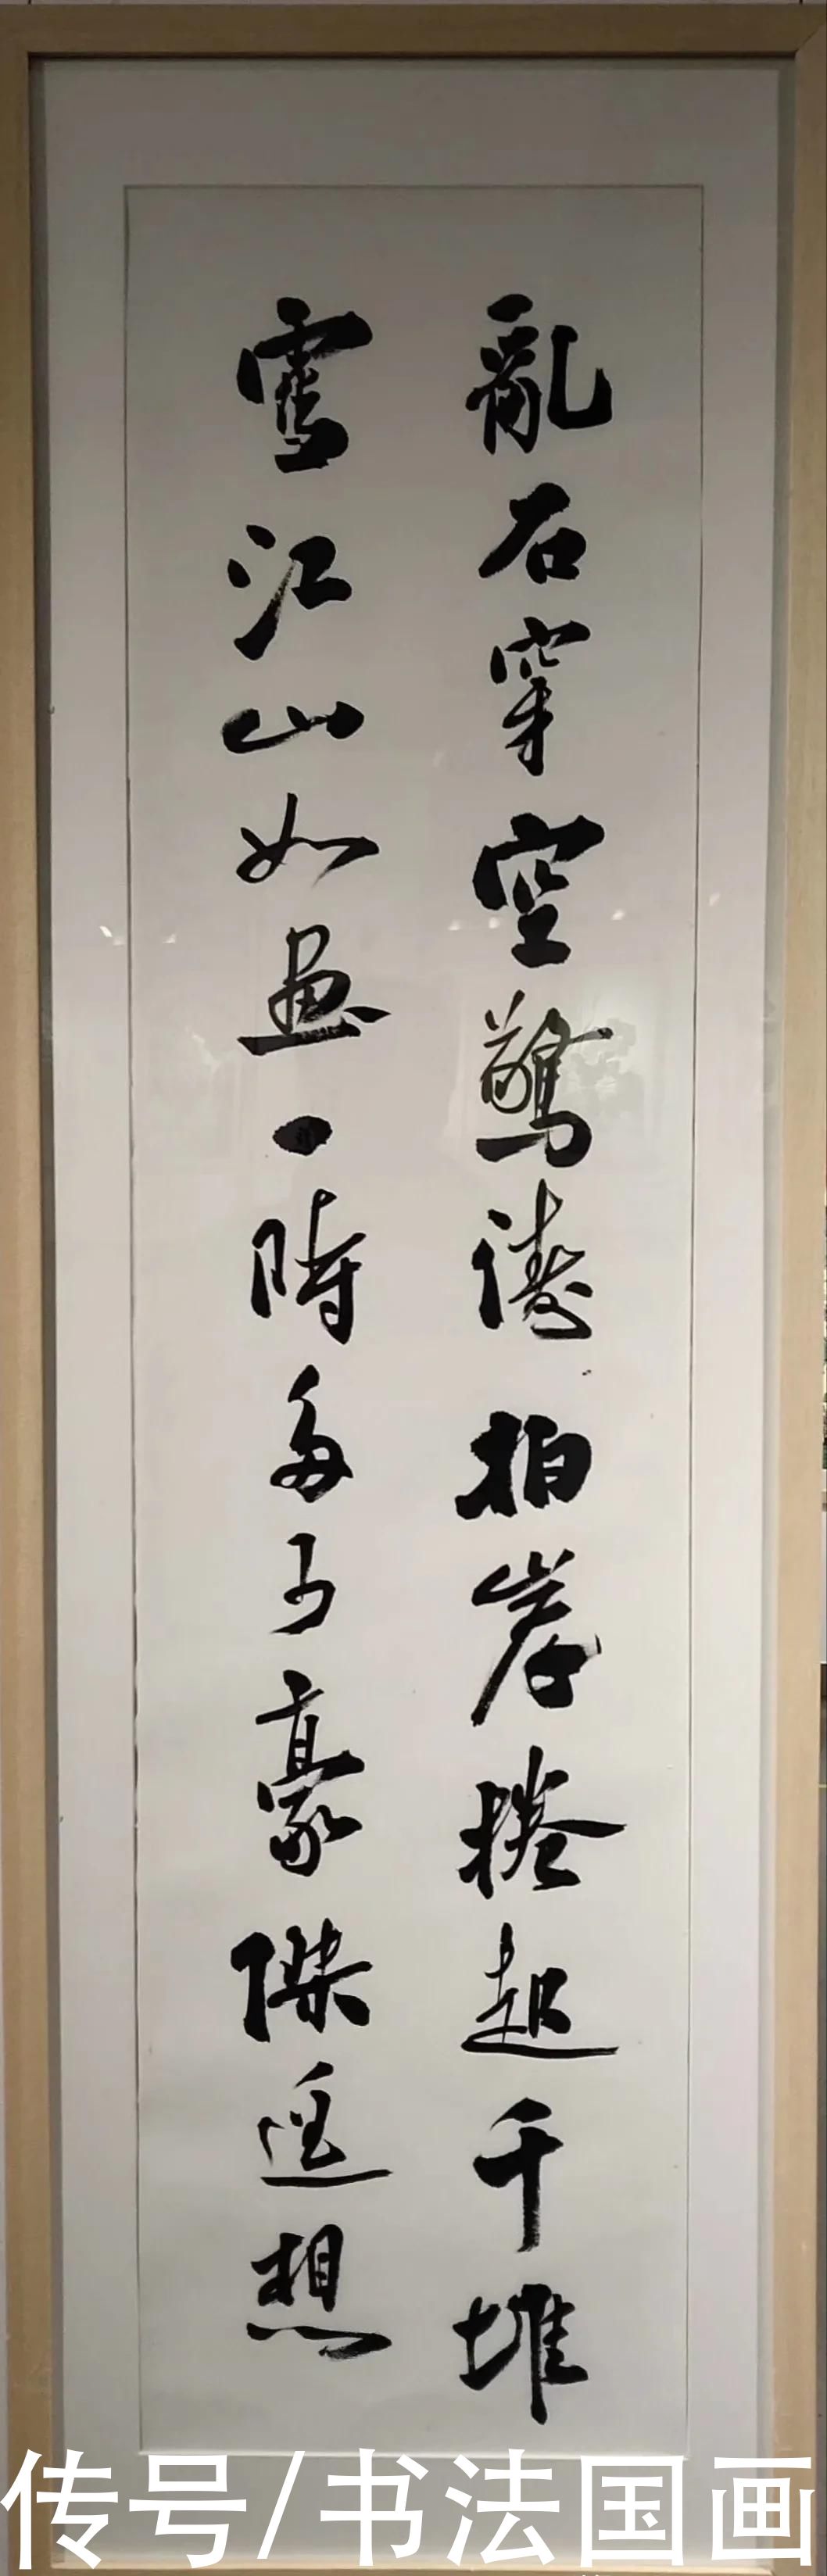 亂石穿空驚濤拍岸捲起千堆
雪江山如畫一時多少豪傑遥想
传号/书法国画